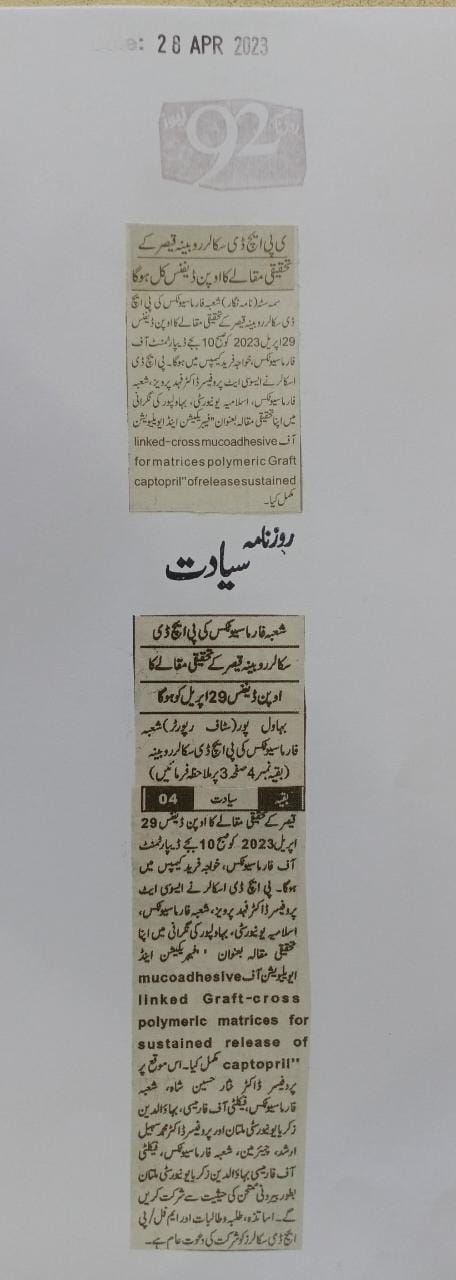 Date: 28 APR 2023
روزنامہ 92 نیوز
پی ایچ ڈی سکالر روبینہ قیصر کے
تحقیقی مقالے کا اوپن ڈیفنس کل ہوگا
سمہ سٹہ (نامہ نگار) شعبہ فارماسیوٹکس کی پی ایچ
ڈی سکالر روبینہ قیصر کے تحقیقی مقالے کا اوپن ڈیفنس
29 اپریل 2023 کو صبح 10 بجے ڈیپارٹمنٹ آف
فارماسیوٹکس، خواجہ فرید کیمپس میں ہوگا۔ پی ایچ ڈی
اسکالر نے ایسوسی ایٹ پروفیسر ڈاکٹر فہد پرویز، شعبہ
فارماسیوٹکس، اسلامیہ یونیورسٹی، بہاولپور کی نگرانی
میں اپنا تحقیقی مقالہ بعنوان "فیبریکیشن اینڈ ایویلیویشن
آف linked-cross mucoadhesive
for matrices polymeric Graft
captopril" of release sustained
مکمل کیا۔
روزنامہ
سیادت
شعبہ فارماسیوٹکس کی پی ایچ ڈی
سکالر روبینہ قیصر کے تحقیقی مقالے کا
اوپن ڈیفنس 29 اپریل کو ہوگا
بہاول پور (سٹاف رپورٹر) شعبہ
فارماسیوٹکس کی پی ایچ ڈی سکالر روبینہ
(بقیہ نمبر 4 صفحہ 3 پر ملاحظہ فرمائیں)
بقیہ سیادت 04
قیصر کے تحقیقی مقالے کا اوپن ڈیفنس 29
اپریل 2023 کو صبح 10 بجے ڈیپارٹمنٹ
آف فارماسیوٹکس، خواجہ فرید کیمپس میں
ہوگا۔ پی ایچ ڈی اسکالر نے ایسوسی ایٹ
پروفیسر ڈاکٹر فہد پرویز، شعبہ فارماسیوٹکس،
اسلامیہ یونیورسٹی، بہاولپور کی نگرانی میں اپنا
تحقیقی مقالہ بعنوان "فیبریکیشن اینڈ
ایویلیویشن آف mucoadhesive
linked Graft-cross
polymeric matrices for
sustained release of
captopril" مکمل کیا۔ اس موقع پر
پروفیسر ڈاکٹر نثار حسین شاہ، شعبہ
فارماسیوٹکس، فیکلٹی آف فارمیسی، بہاؤالدین
زکریا یونیورسٹی ملتان اور پروفیسر ڈاکٹر محمد سہیل
ارشد، چیئرمین، شعبہ فارماسیوٹکس، فیکلٹی
آف فارمیسی بہاؤالدین زکریا یونیورسٹی ملتان
بطور بیرونی ممتحن کی حیثیت سے شرکت کریں
گے۔ اساتذہ، طلبہ و طالبات اور ایم فل/پی
ایچ ڈی سکالرز کو شرکت کی دعوت عام ہے۔